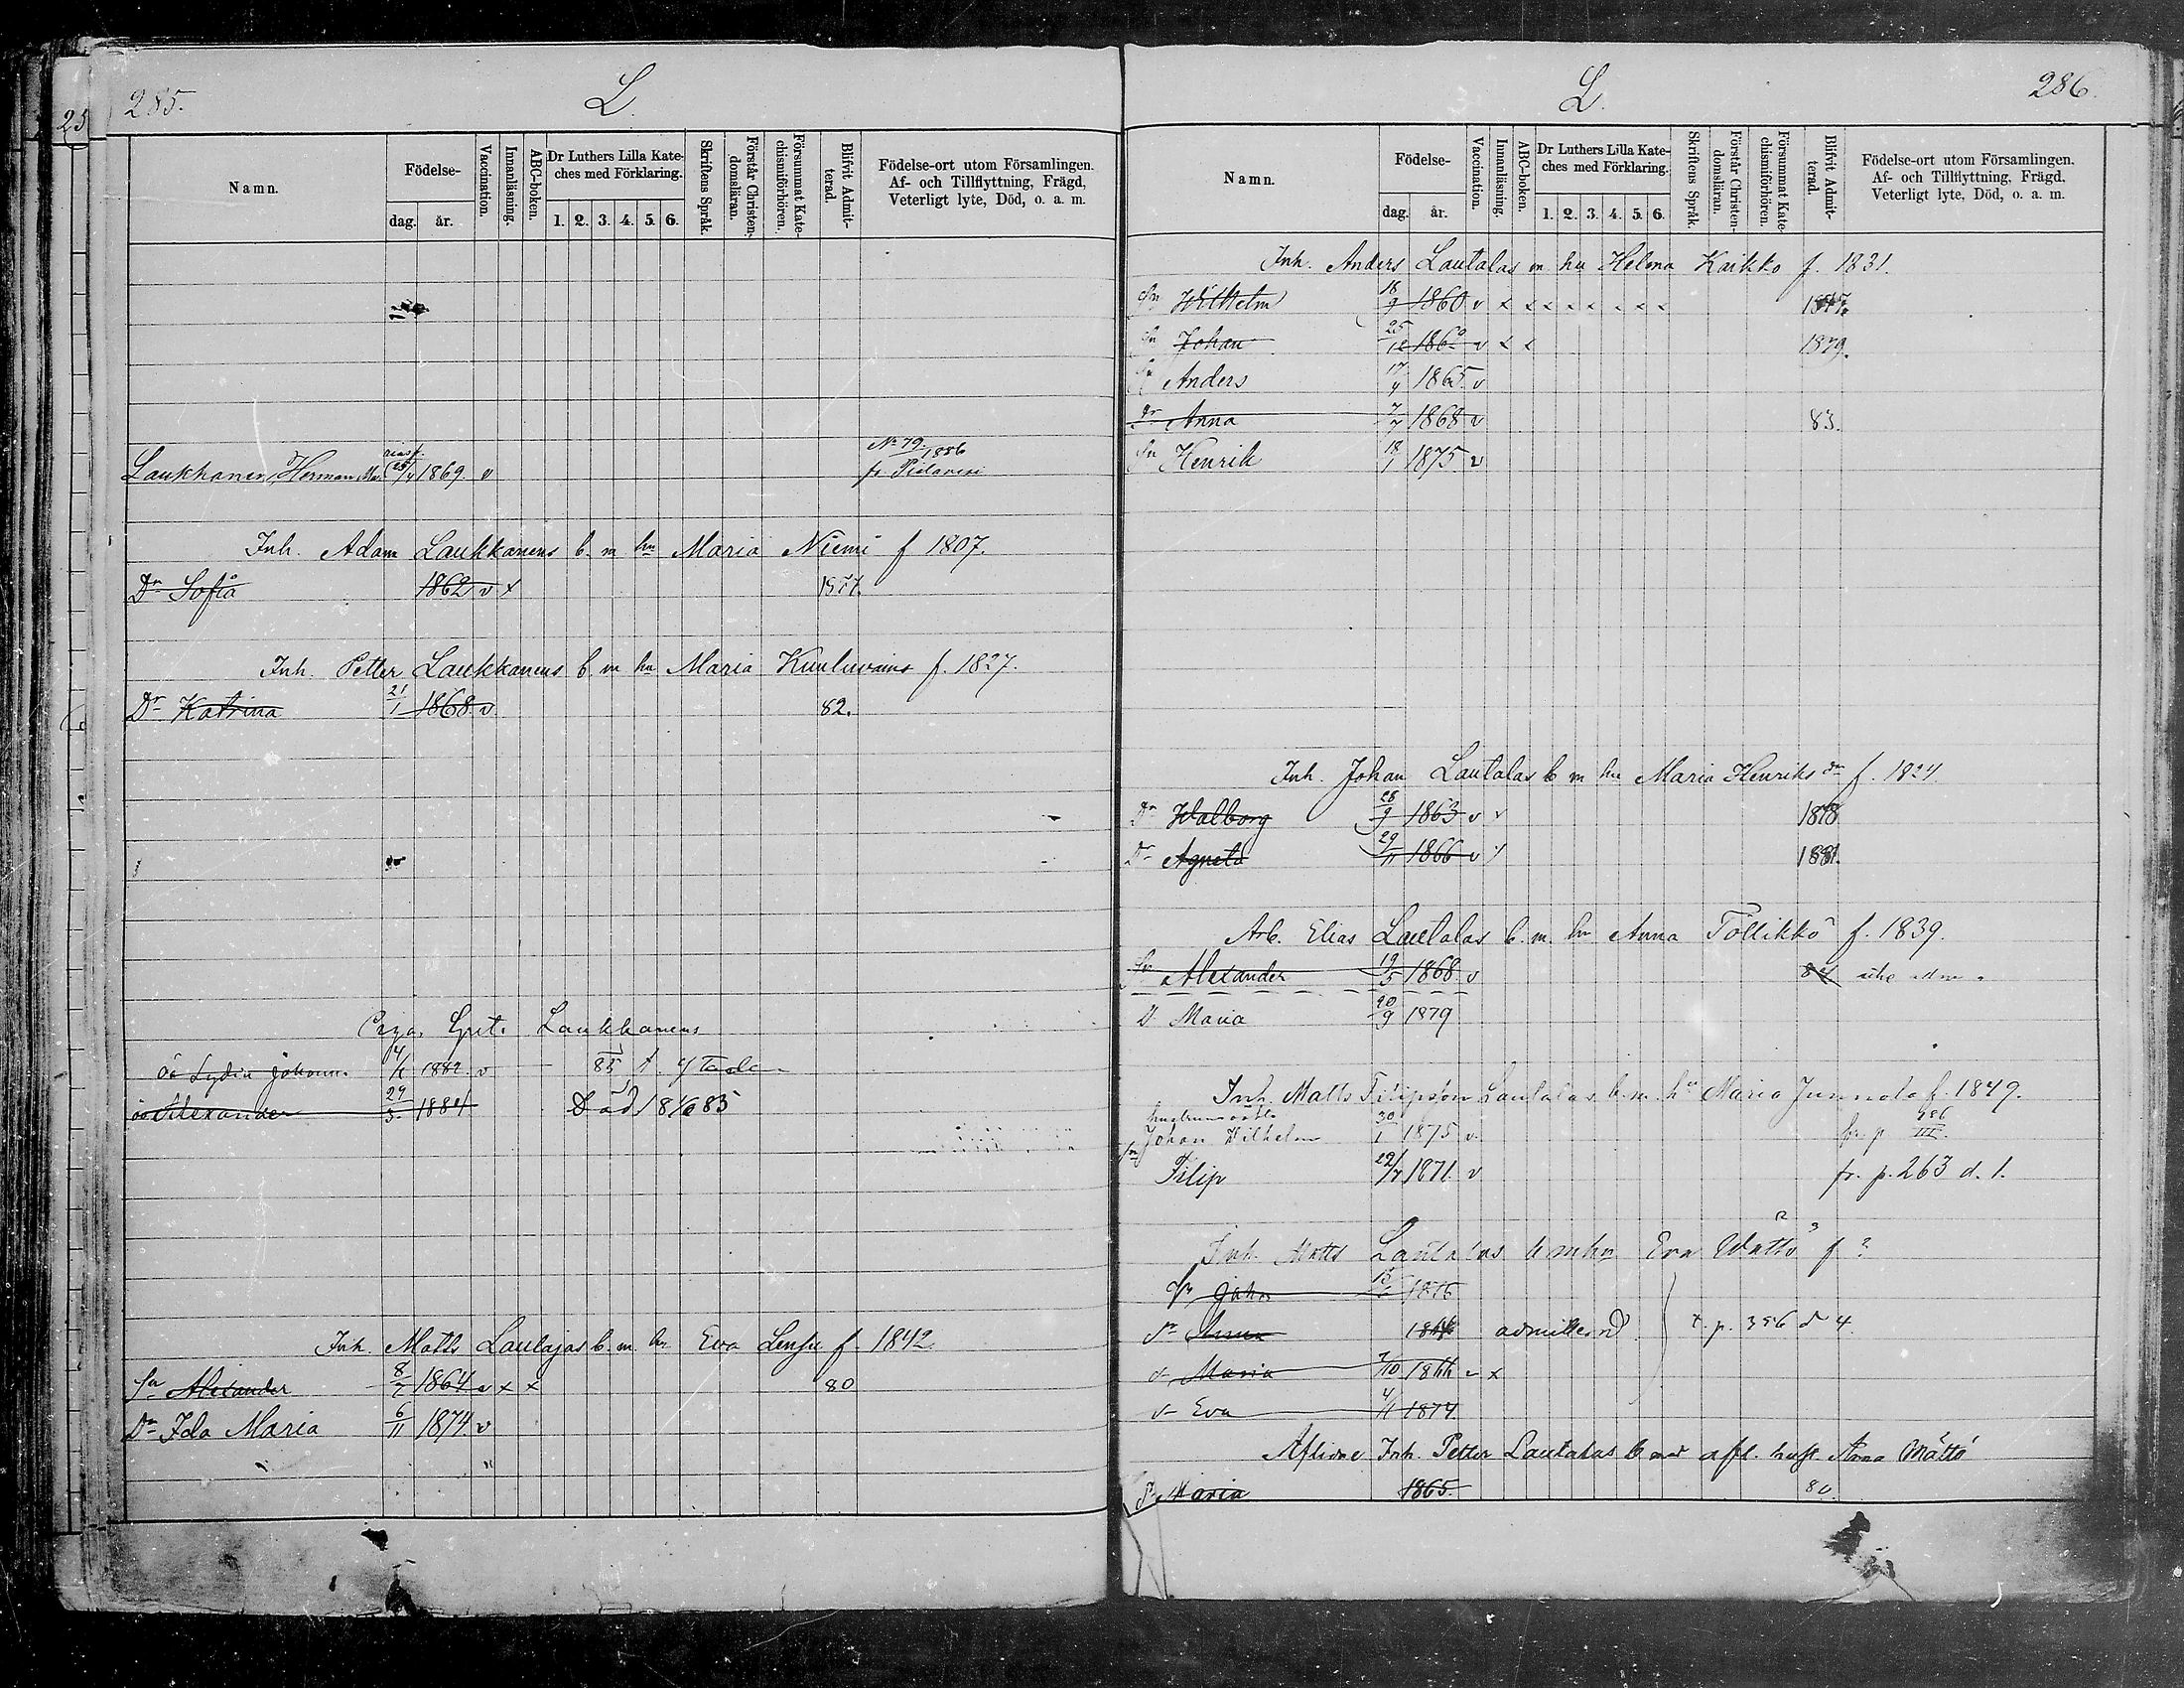 285.
L.
Namn.
Födelse-
dag.
år.
Vaccination.
Innanläsning.
ABC-boken.
Dr Luthers Lilla Kate-
ches med Förklaring.
1. 2. 3. 4. 5. 6.
Skriftens Språk.
Förstår Christen-
domsläran.
Försummat Kate-
chismiförhören.
Blifvit Admit-
terad.
Födelse-ort utom Församlingen.
Af- och Tillflyttning, Frägd,
Veterligt lyte, Död, o. a. m.
No 79./1886
Laukkanen, Herman Ma 25/4 1869. v fr. Pielavesi
Inh. Adam Laukkanens b. m hu Maria Niemi f 1807.
Dr Sofia 1862 v x 1877.
Inh. Petter Laukkanens b m hu Maria f. 1827.
Dr Katrina 21/1 1868. v 82.
Laukkanens
oä Lydia Johann. 1882. v 85
oä Alexander 24/3 1884 Död 85
Inh. Matts Laulajas b. m. hu Eva f. 1842.
Sn Alexander 8/7 1864 v x x 80
Dr Ida Maria 6/11 1874. v
L.
286.
Namn.
Födelse-
dag.
år.
Vaccination.
Innanläsning.
ABC-boken.
Dr Luthers Lilla Kate-
ches med Förklaring.
1. 2. 3. 4. 5. 6.
Skriftens Språk.
Förstår Christen-
domsläran.
Försummat Kate-
chismiförhören.
Blifvit Admit-
terad.
Födelse-ort utom Församlingen.
Af- och Tillflyttning, Frägd.
Veterligt lyte, Död, o. a. m.
Inh. Anders Lautalas m hu Helena Kaikko f. 1831.
Sn Wilhelm 18/9 1860 v x x x x x x x x
Sn Johan 25/12 186 v x x 1879.
Sn Anders 17/4 1865 v
Dr Anna 7/7 1868 v 83.
Sn Henrik 18/1 1875 v
Inh. Johan Lautalas b m hu Maria Henriks dr f. 1824.
Dr Walborg 28/9 1863 v v 1878
Dr Agneta 29/11 1866 v 1881.
Arb. Elias Lautalas b. m. hu Anna Töllikkö f. 1839.
Sn Alexander 19/5 1868 v
D Maria 20/9 1879
Inh. Matts Filipsson Lautalas b. m. hu Maria Junnola f. 1849.
hustruns oäkta
Johan Wilhelm 30/1 1875 v. fr. p III.
Sn Filip 22/7 1871. v fr. p. 263 d. 1.
Inh. Matts Lautalas b m hu Eva Wättö f ?
Sn Joha
dr Anna admitterad p. 356 d 4.
dr Maria 7/10 x
dr Eva 1874
Aflidne Inh. Petter Lautalas b med afl. hust Anna Mättö
Dr Maria 1865. 80.